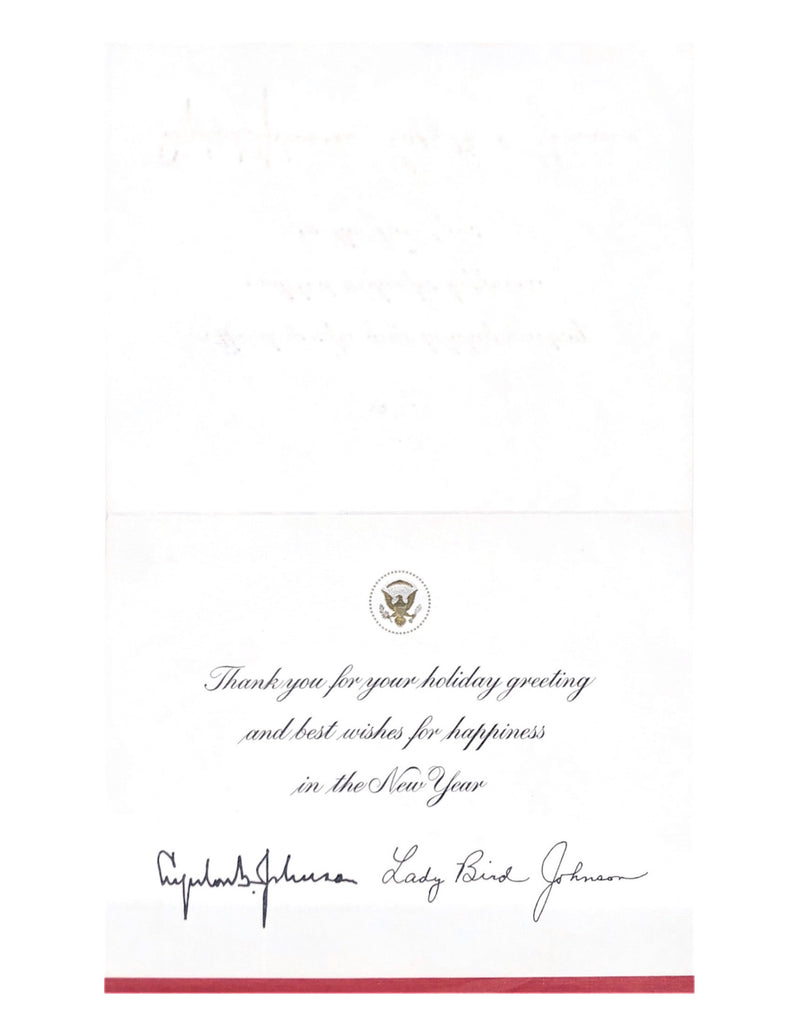 Thank you for your holiday greeting
and best wishes for happiness
in the New Year
Lyndon B. Johnson Lady Bird Johnson